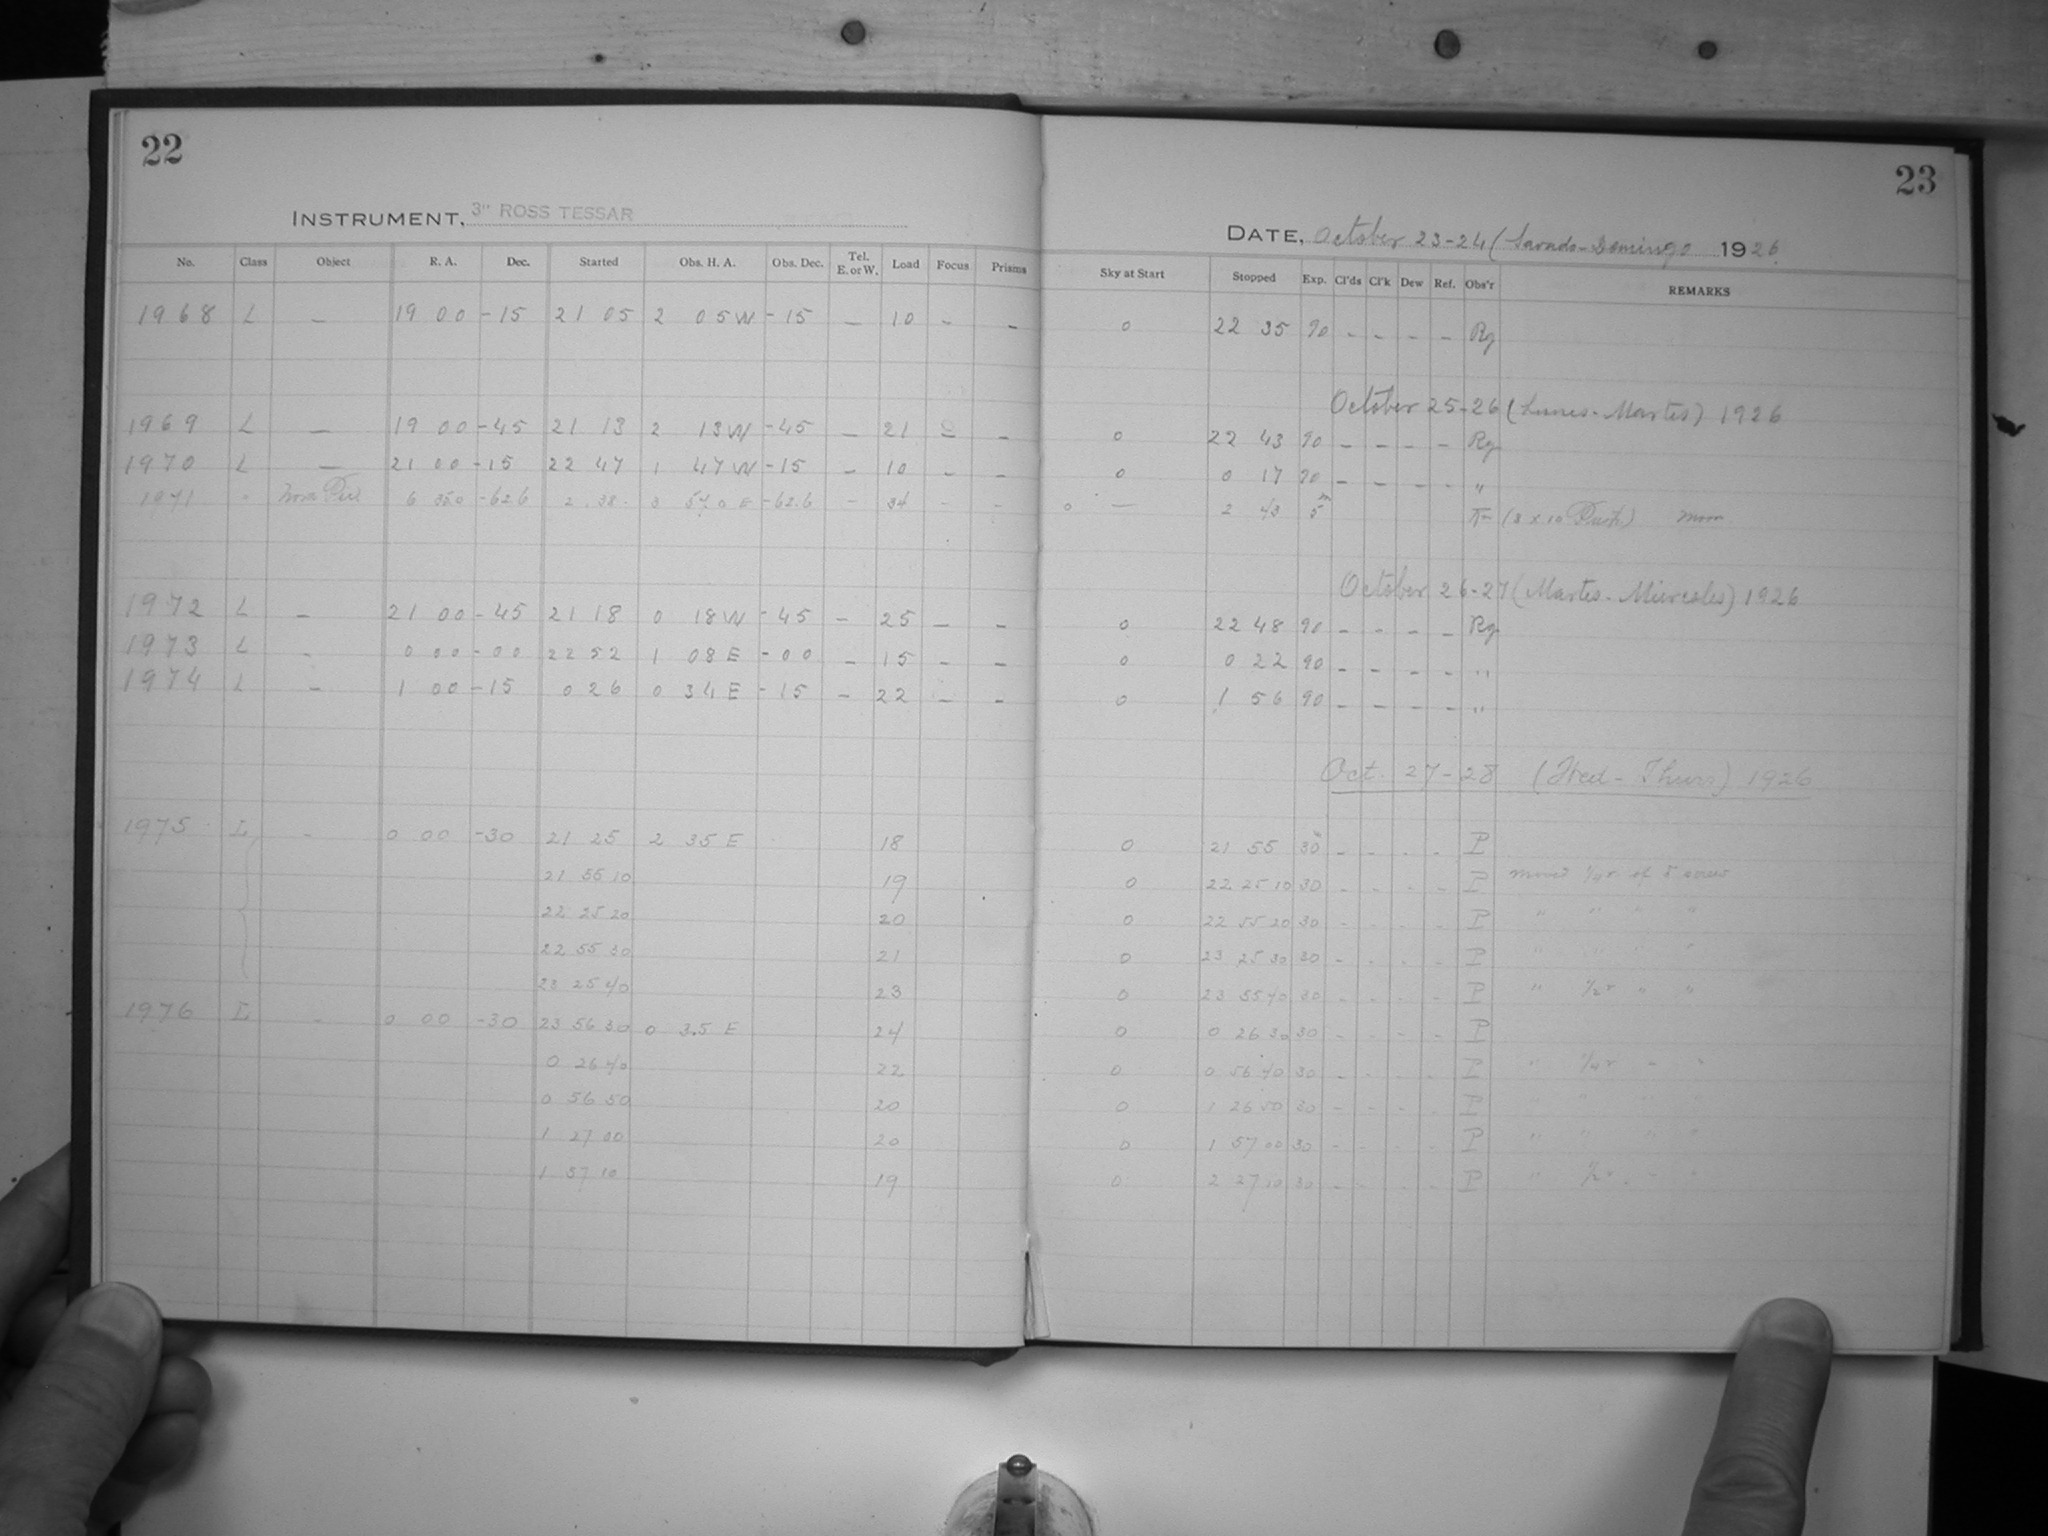 22
23
INSTRUMENT, 3" ROSS TESSAR
DATE, October 23-24 (Savado-Domingo 1926
No. Class Object R. A. Dec. Started Obs. H. A. Obs. Dec. Tel. E. or W. Load Focus Prisms Sky at Start Stopped Exp. Cl'ds Cl'k Dew Ref. Obs'r REMARKS
1968 L — 19 00 -15 21 05 2 05 W -15 — 10 - - 0 22 35 90 - - - - Rg
October 25-26 (Lunes-Martes) 1926
1969 L — 19 00 -45 21 13 2 13 W -45 — 21 - - 0 22 43 90 - - - - Rg
1970 L — 21 00 -15 22 47 1 47 W -15 - 10 - - 0 0 17 90 - - - - "
1971 " Nova Pic 6 35.0 -62.6 2 38 3 57.0 E -62.6 - 34 - - 0 — 2 43 5m (8 x 10 ) Moon
October 26-27 (Martes-Miercoles) 1926
1972 L — 21 00 -45 21 18 0 18 W -45 - 25 - - 0 22 48 90 - - - - Rg
1973 L - 0 00 -00 22 52 1 08 E -00 - 15 - - 0 0 22 90 - - - - "
1974 L - 1 00 -15 0 26 0 34 E -15 - 22 - - 0 1 56 90 - - - - "
Oct. 27-28 (Wed-Thurs) 1926
1975 L - 0 00 -30 21 25 2 35 E 18 0 21 55 30 - - - - P
21 55 10 19 0 22 25 10 30 - - - - P moved 1/4 r of δ screw
22 25 20 20 0 22 55 20 30 - - - - P " " " "
22 55 30 21 0 23 25 30 30 - - - - P " " " "
23 25 40 23 0 23 55 40 30 - - - - P " 1/2 r " "
1976 L - 0 00 -30 23 56 30 0 3.5 E 24 0 0 26 30 30 - - - - P
0 26 40 22 0 0 56 40 30 - - - - P " 1/4 r " "
0 56 50 20 0 1 26 50 30 - - - - P " " " "
1 27 00 20 0 1 57 00 30 - - - - P " " " "
1 57 10 19 0 2 27 10 30 - - - - P " 1/2 r " "